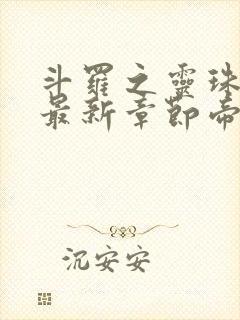 斗羅之靈珠
最新章節帝
沉安安